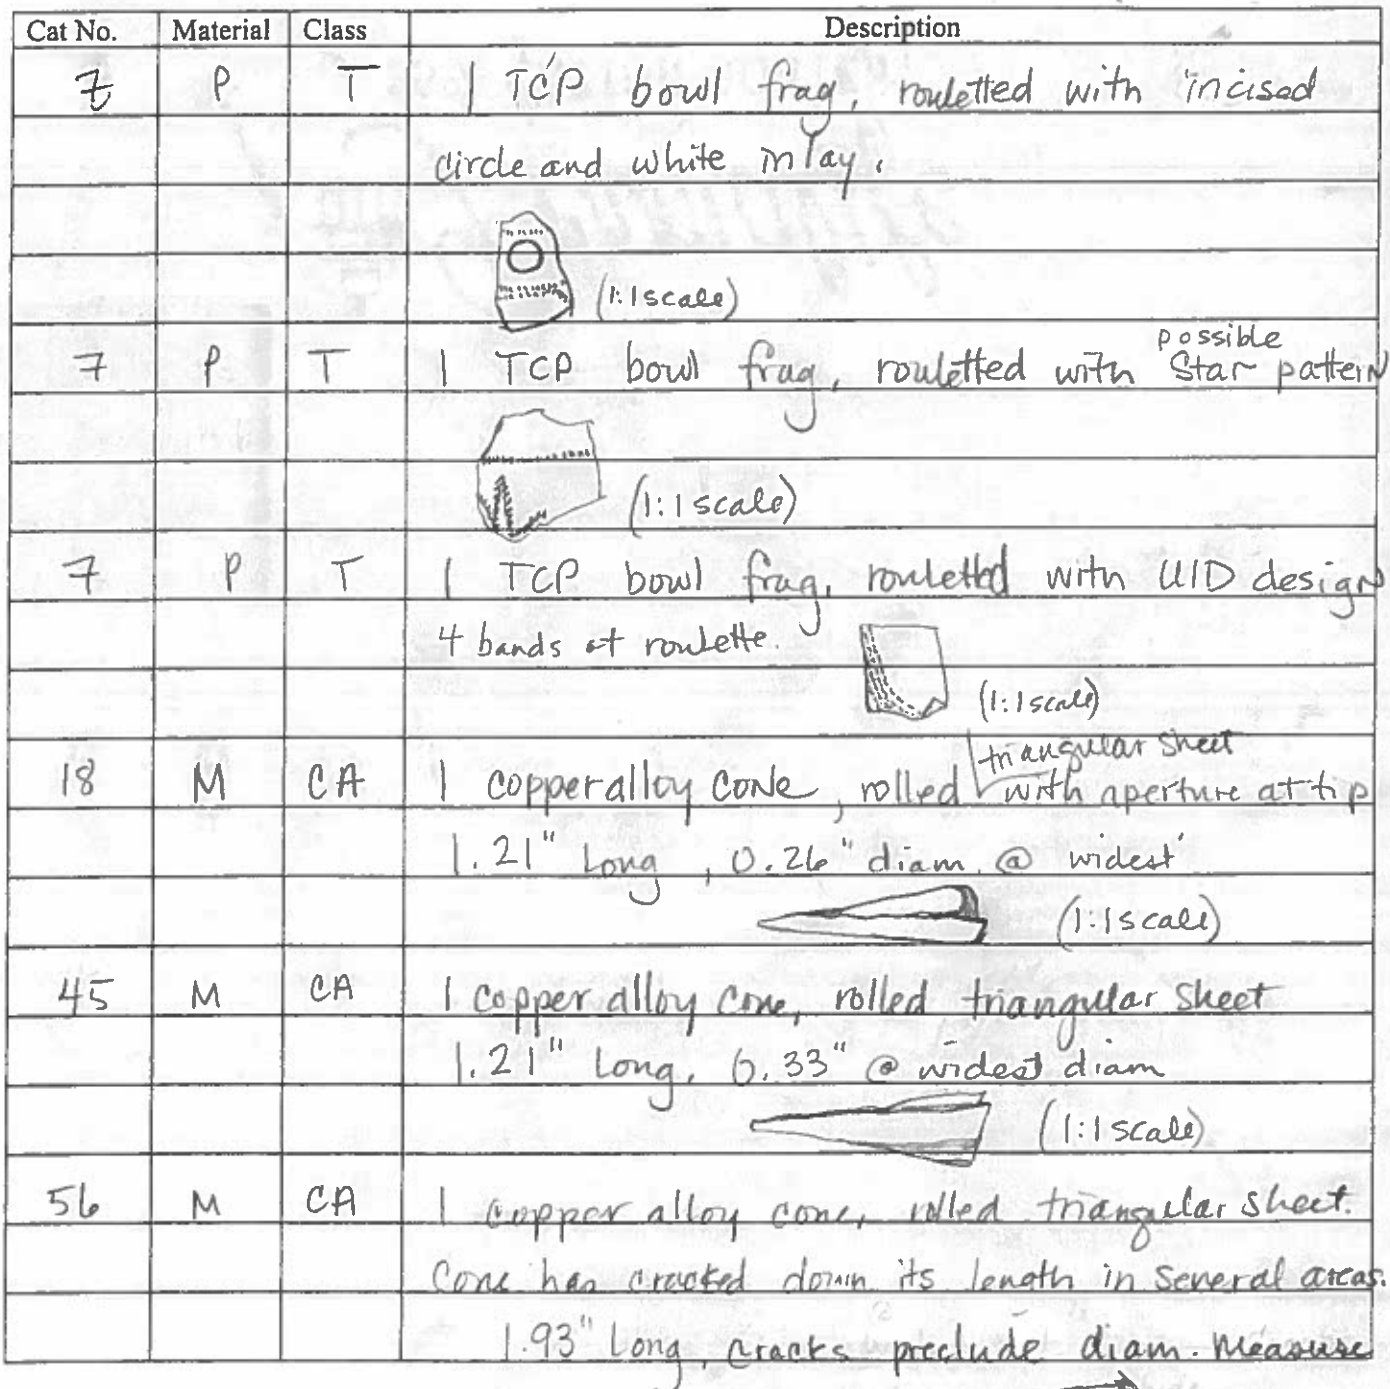 Cat No. Material Class Description
7 P T 1 TCP bowl frag, rouletted with incised
circle and white inlay.
(1:1 scale)
possible
7 P T 1 TCP bowl frag, rouletted with Star pattern
(1:1 scale)
7 P T 1 TCP bowl frag, rouletted with UID design
4 bands of roulette.
(1:1 scale)
triangular sheet
18 M CA 1 copper alloy cone, rolled with aperture at tip
1.21" long, 0.26" diam @ widest
(1:1 scale)
45 M CA 1 copper alloy cone, rolled triangular sheet
1.21" long, 0.33" @ widest diam
(1:1 scale)
56 M CA 1 copper alloy cone, rolled triangular sheet.
Cone has cracked down its length in several areas.
1.93" long, cracks preclude diam. measure